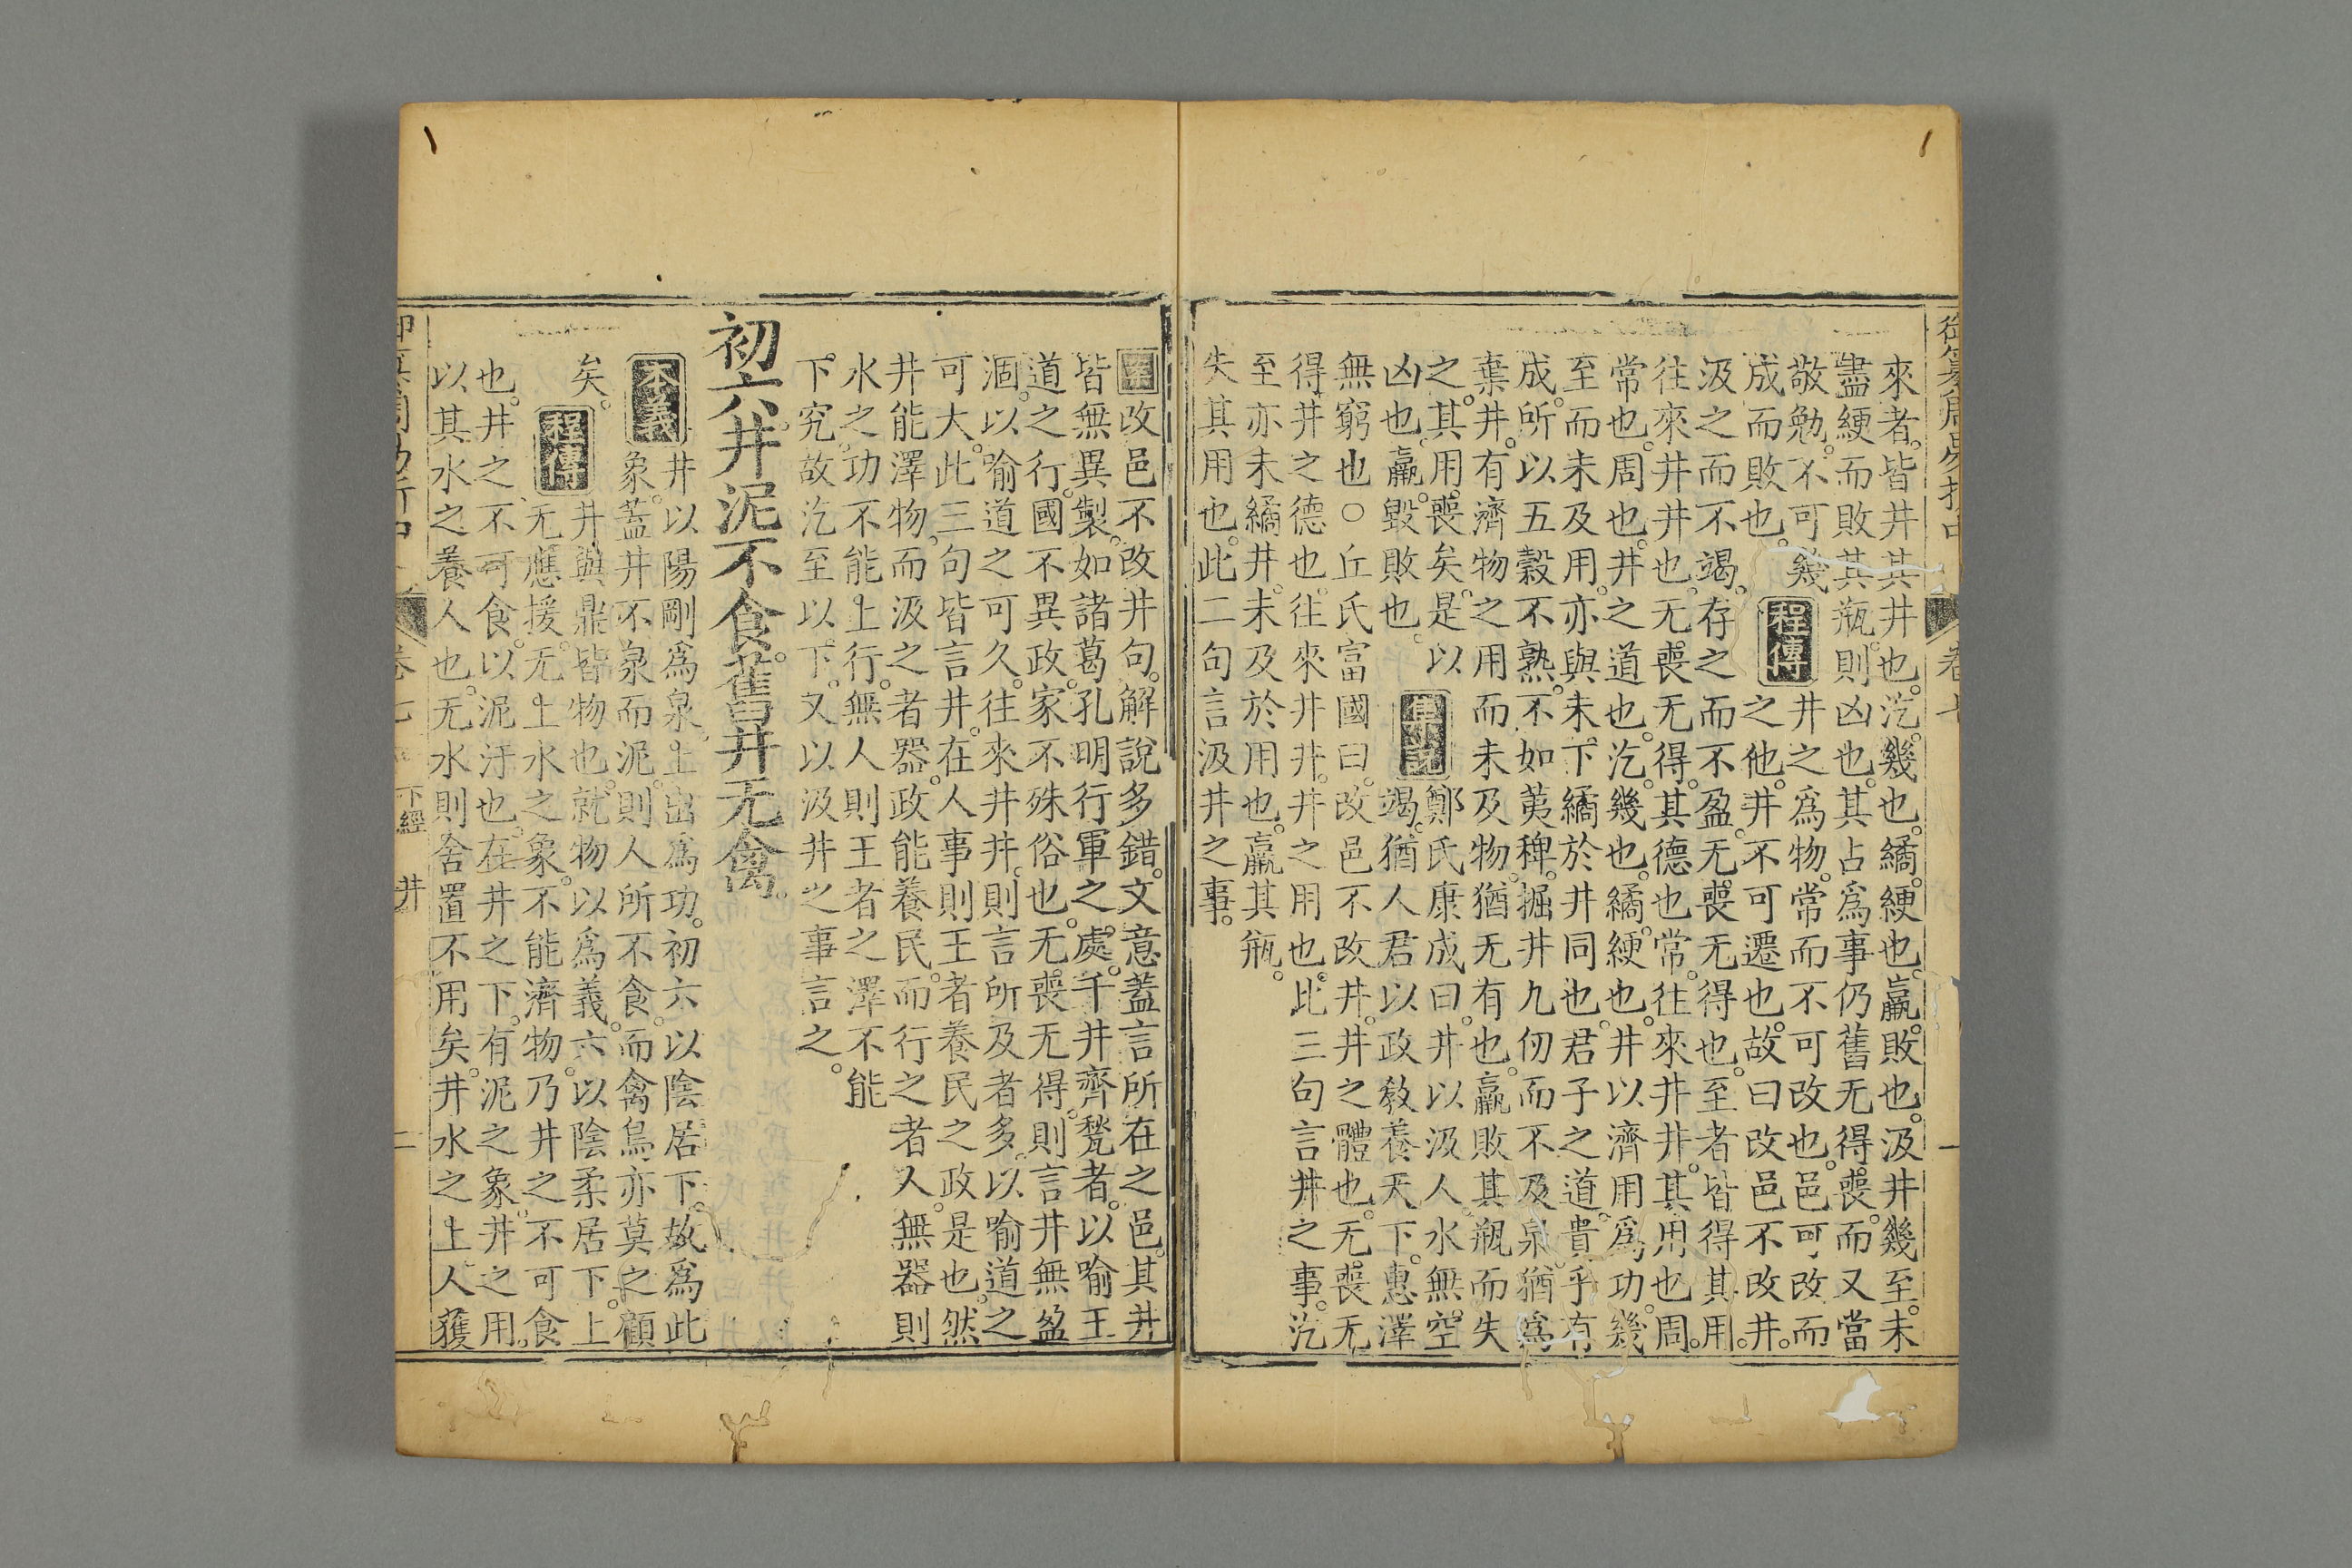 御纂周易折中 卷七
來者。皆井其井也。汔。幾也。繘。綆也。羸。敗也。汲井幾至。未
盡綆而敗其瓶。則凶也。其占爲事仍舊无得喪。而又當
敬勉。不可幾
成而敗也。
程傳
井之爲物。常而不可改也。邑可改而
之他。井不可遷也。故曰改邑不改井。
汲之而不竭。存之而不盈。无喪无得也。至者皆得其用。
往來井井也。无喪无得。其德也常。往來井井。其用也周。
常也。周也。井之道也。汔。幾也。繘。綆也。井以濟用爲功。幾
至而未及用。亦與未下繘於井同也。君子之道。貴乎有
成。所以五穀不熟。不如荑稗。掘井九仞而不及泉。猶爲
棄井。有濟物之用而未及物。猶无有也。羸敗其瓶而失
之。其用喪矣。是以
凶也。羸。毀敗也。
集說
鄭氏康成曰。井以汲人。水無空
竭。猶人君以政敎養天下。惠澤
無窮也○丘氏富國曰。改邑不改井。井之體也。无喪无
得。井之德也。往來井井。井之用也。此三句言井之事。汔
至亦未繘井。未及於用也。羸其瓶。
失其用也。此二句言汲井之事。
案
改邑不改井句。解說多錯。文意蓋言所在之邑。其井
皆無異製。如諸葛孔明行軍之處。千井齊甃者。以喻王
道之行。國不異政。家不殊俗也。无喪无得。則言井無盈
涸。以喻道之可久。往來井井。則言所及者多。以喻道之
可大。此三句皆言井。在人事則王者養民之政是也。然
井能澤物。而汲之者器。政能養民。而行之者人。無器則
水之功不能上行。無人則王者之澤不能
下究。故汔至以下。又以汲井之事言之。
初六。井泥不食。舊井无禽。
本義
井以陽剛爲泉。上出爲功。初六以陰居下。故爲此
象。蓋井不泉而泥。則人所不食。而禽鳥亦莫之顧
矣。
程傳
井與鼎皆物也。就物以爲義。六以陰柔居下。上
无應援。无上水之象。不能濟物。乃井之不可食
也。井之不可食。以泥汙也。在井之下。有泥之象。井之用。
以其水之養人也。无水則舍置不用矣。井水之上。人獲
卷七 下經 井 二